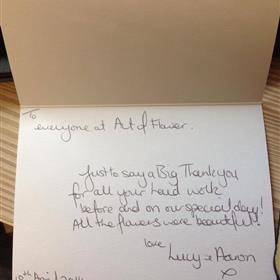 To
everyone at Art of Flower.
Just to say a Big Thank you
for all your hard work
before and on our special day!
All the flowers were beautiful!
love
Lucy & Aaron
x
10th April 2014